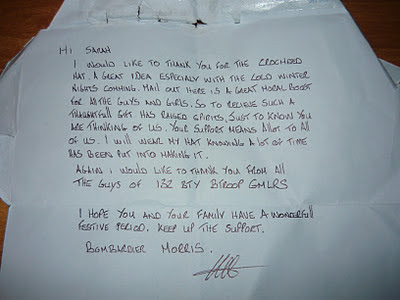 Hi SARAH
I WOULD LIKE TO THANK YOU FOR THE CROCHEED
HAT. A GREAT IDEA ESPECIALY WITH THE COLD WINTER
NIGHTS COMMING. MAIL OUT HERE IS A GREAT MORAL BOOST
FOR All THE GUYS AND GIRLS. SO TO RECIEVE SUCH A
THAUGHTFULL GIFT. HAS RAISED SPIRITS. JUST TO KNOW YOU
ARE THINKING OF US. YOUR SUPPORT MEANS ALLOT TO All
OF US. I WILL WEAR MY HAT KNOWING A LOT OF TIME
HAS BEEN PUT INTO MAKING IT.
AGAIN I WOULD LIKE TO THANK YOU FROM All
THE GUYS OF 132 BTY BTROOP GMLRS
I HOPE YOU AND YOUR FAMILY HAVE A WONDERFUll
FESTIVE PERIOD. KEEP UP THE SUPPORT.
BOMBARDIER MORRIS.